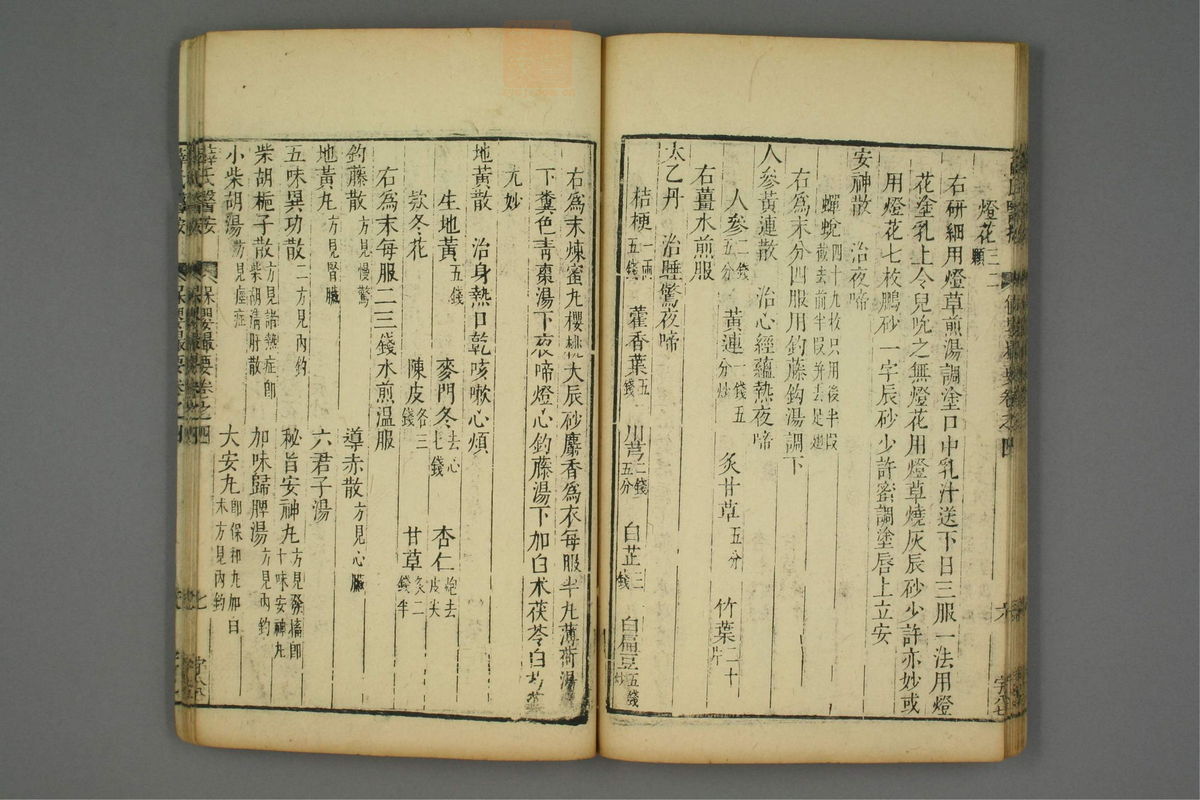 燈花三二顆
右研細用燈草煎湯調塗口中乳汁送下日三服一法用燈
花塗乳上令兒吮之無燈花用燈草燒灰辰砂少許亦妙或
用燈花七枚鵬砂一字辰砂少許蜜調塗唇上立安
安神散 治夜啼
蟬蛻四十九枚只用後半段截去前半段并去足翅
右為末分四服用釣藤鈎湯調下
人參黃連散 治心經蘊熱夜啼
人參二錢五分 黃連一錢五分炒 炙甘草五分 竹葉二十片
右薑水煎服
太乙丹 治睡驚夜啼
桔梗一兩五錢 藿香葉五錢 川芎二錢五分 白芷三錢 白扁豆五錢炒
右為末煉蜜丸櫻桃大辰砂麝香為衣每服半丸薄荷湯
下糞色青棗湯下夜啼燈心釣藤湯下加白朮茯苓白芍藥
尤妙
地黃散 治身熱口乾咳嗽心煩
生地黃五錢 麥門冬去心七錢 杏仁炮去皮尖
款冬花 陳皮各三錢 甘草炙二錢半
右為末每服二三錢水煎溫服
釣藤散方見慢驚 導赤散方見心臟
地黃丸方見腎臟 六君子湯
五味異功散二方見內釣 秘旨安神丸方見發搐即十味安神丸
柴胡梔子散方見諸熱症即柴胡清肝散 加味歸脾湯方見內釣
小柴胡湯方見痙症 大安丸即保和丸加白朮方見內釣
薛氏醫按 保嬰撮要卷之四 七